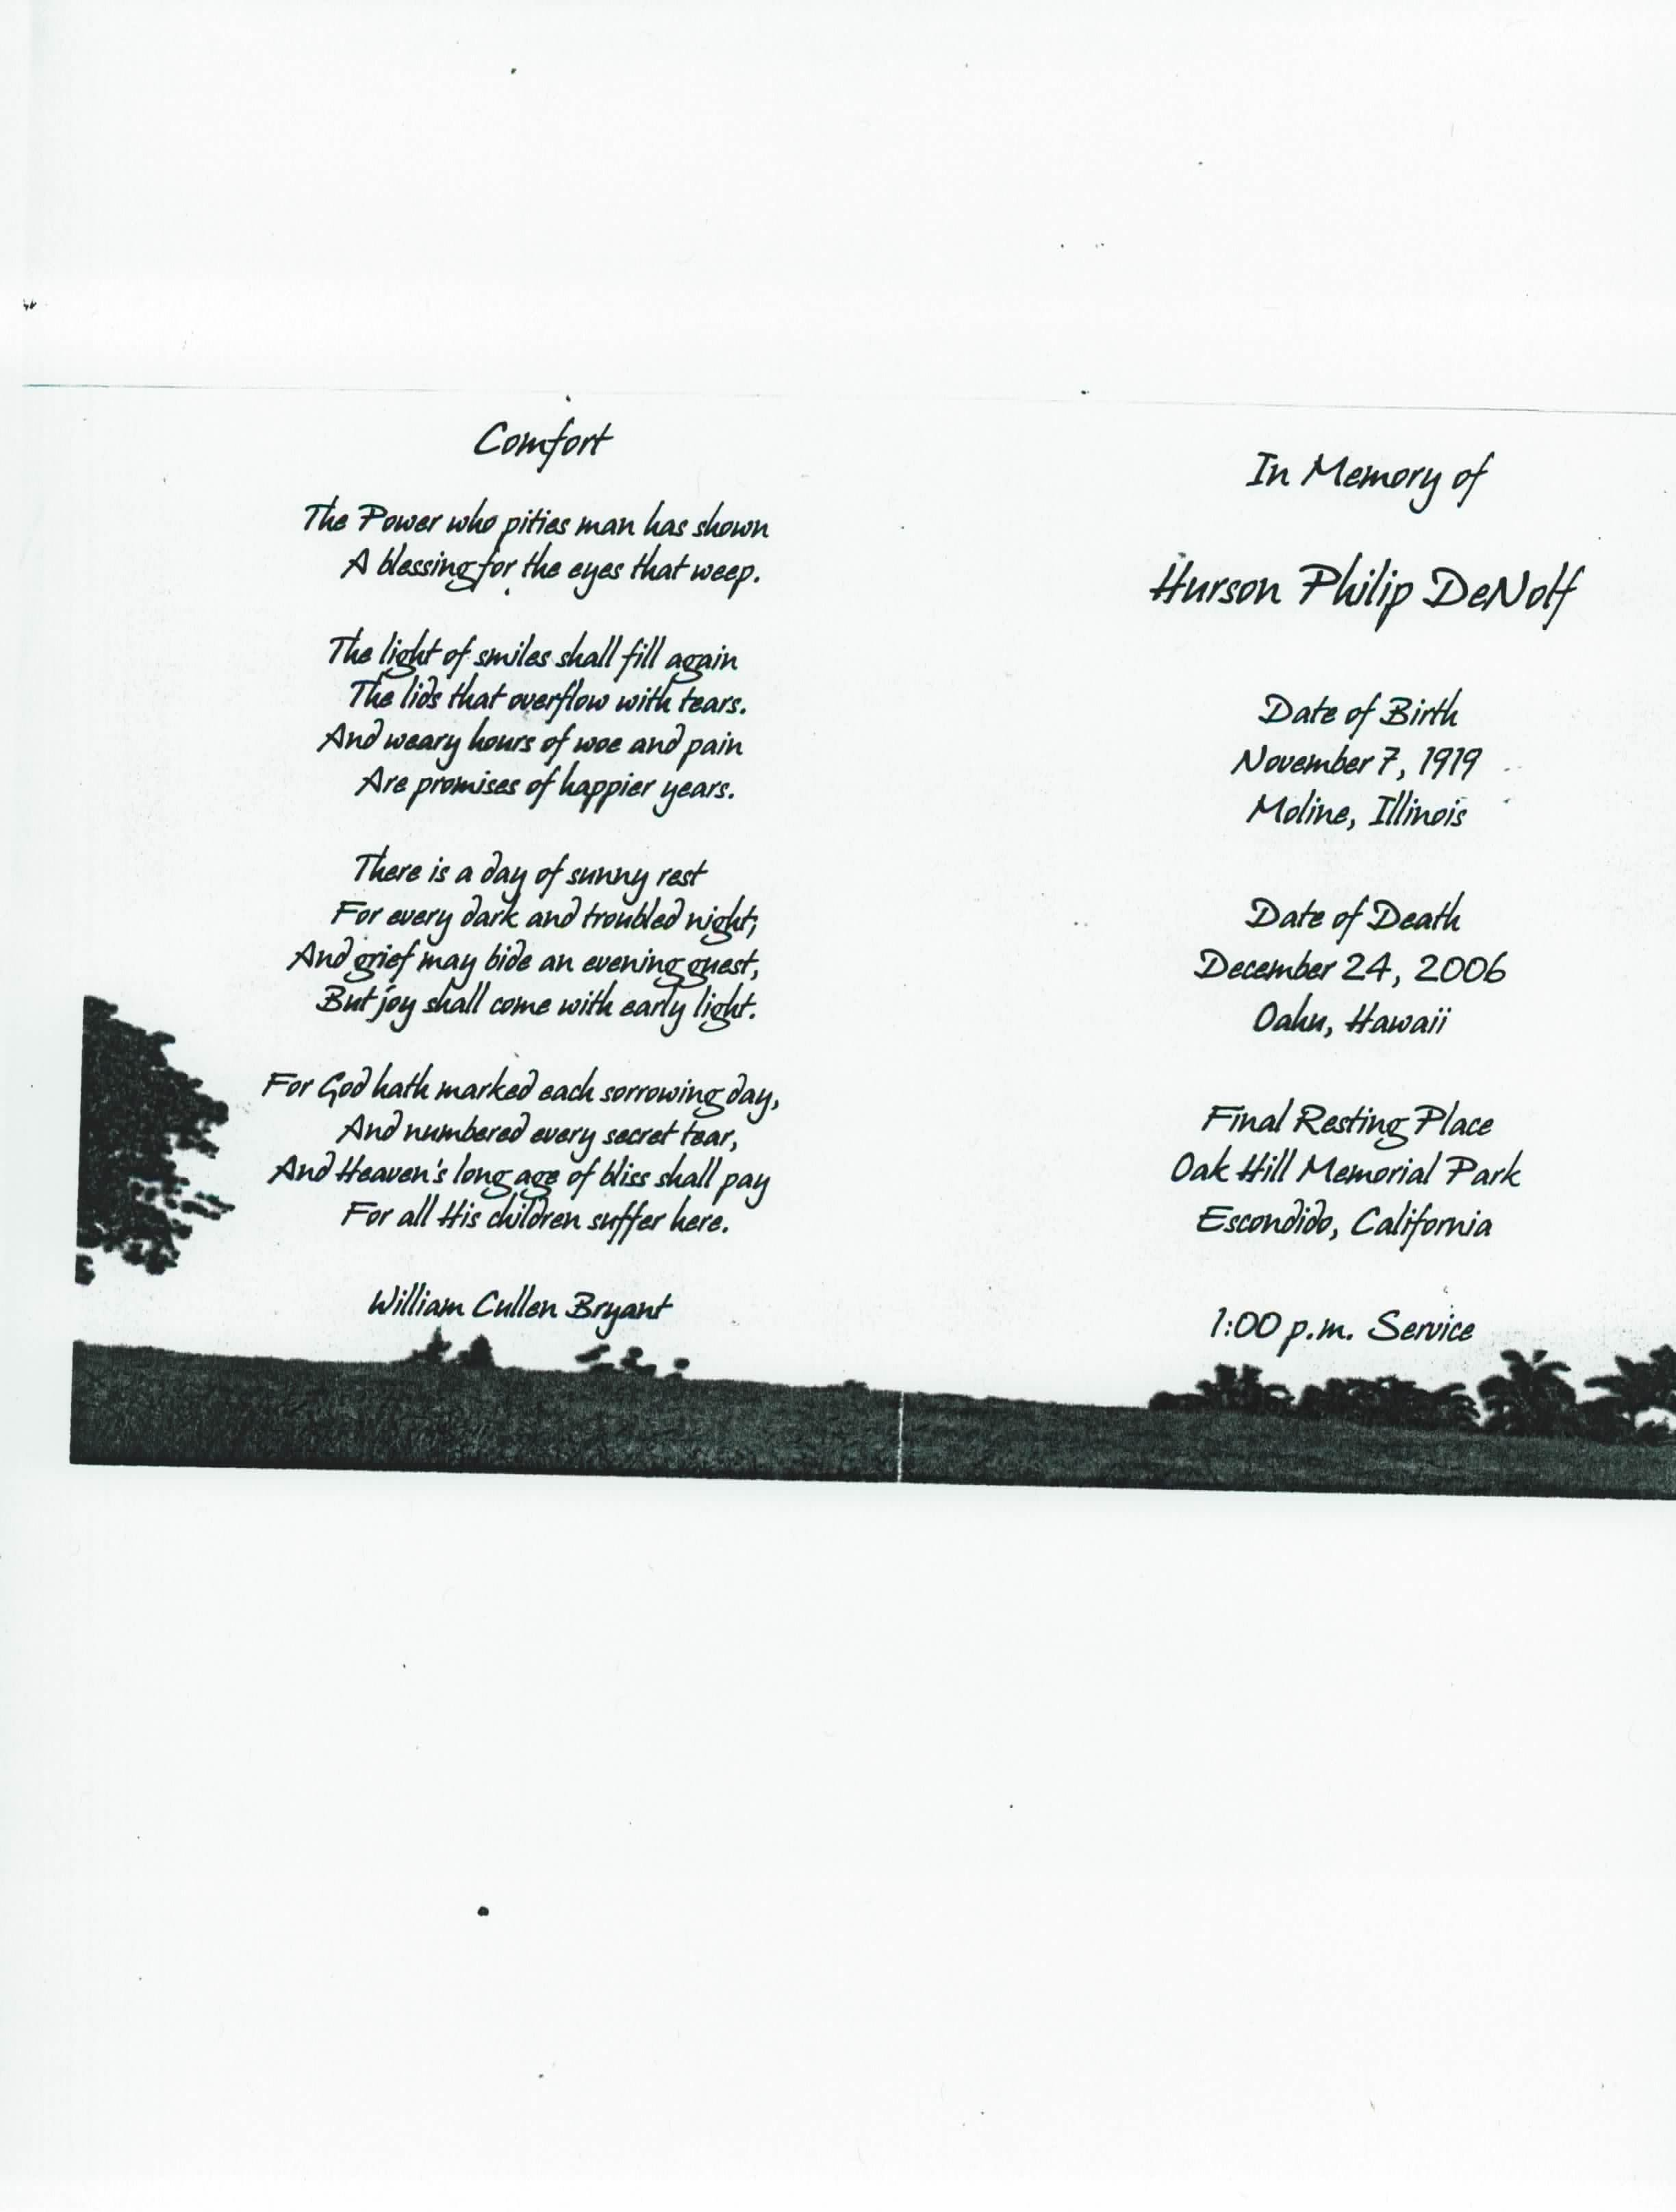 Comfort
The Power who pities man has shown
A blessing for the eyes that weep.
The light of smiles shall fill again
The lids that overflow with tears.
And weary hours of woe and pain
Are promises of happier years.
There is a day of sunny rest
For every dark and troubled night;
And grief may bide an evening guest,
But joy shall come with early light.
For God hath marked each sorrowing day,
And numbered every secret tear,
And Heaven's long age of bliss shall pay
For all His children suffer here.
William Cullen Bryant
In Memory of
Hurson Philip DeNolf
Date of Birth
November 7, 1919
Moline, Illinois
Date of Death
December 24, 2006
Oahu, Hawaii
Final Resting Place
Oak Hill Memorial Park
Escondido, California
1:00 p.m. Service